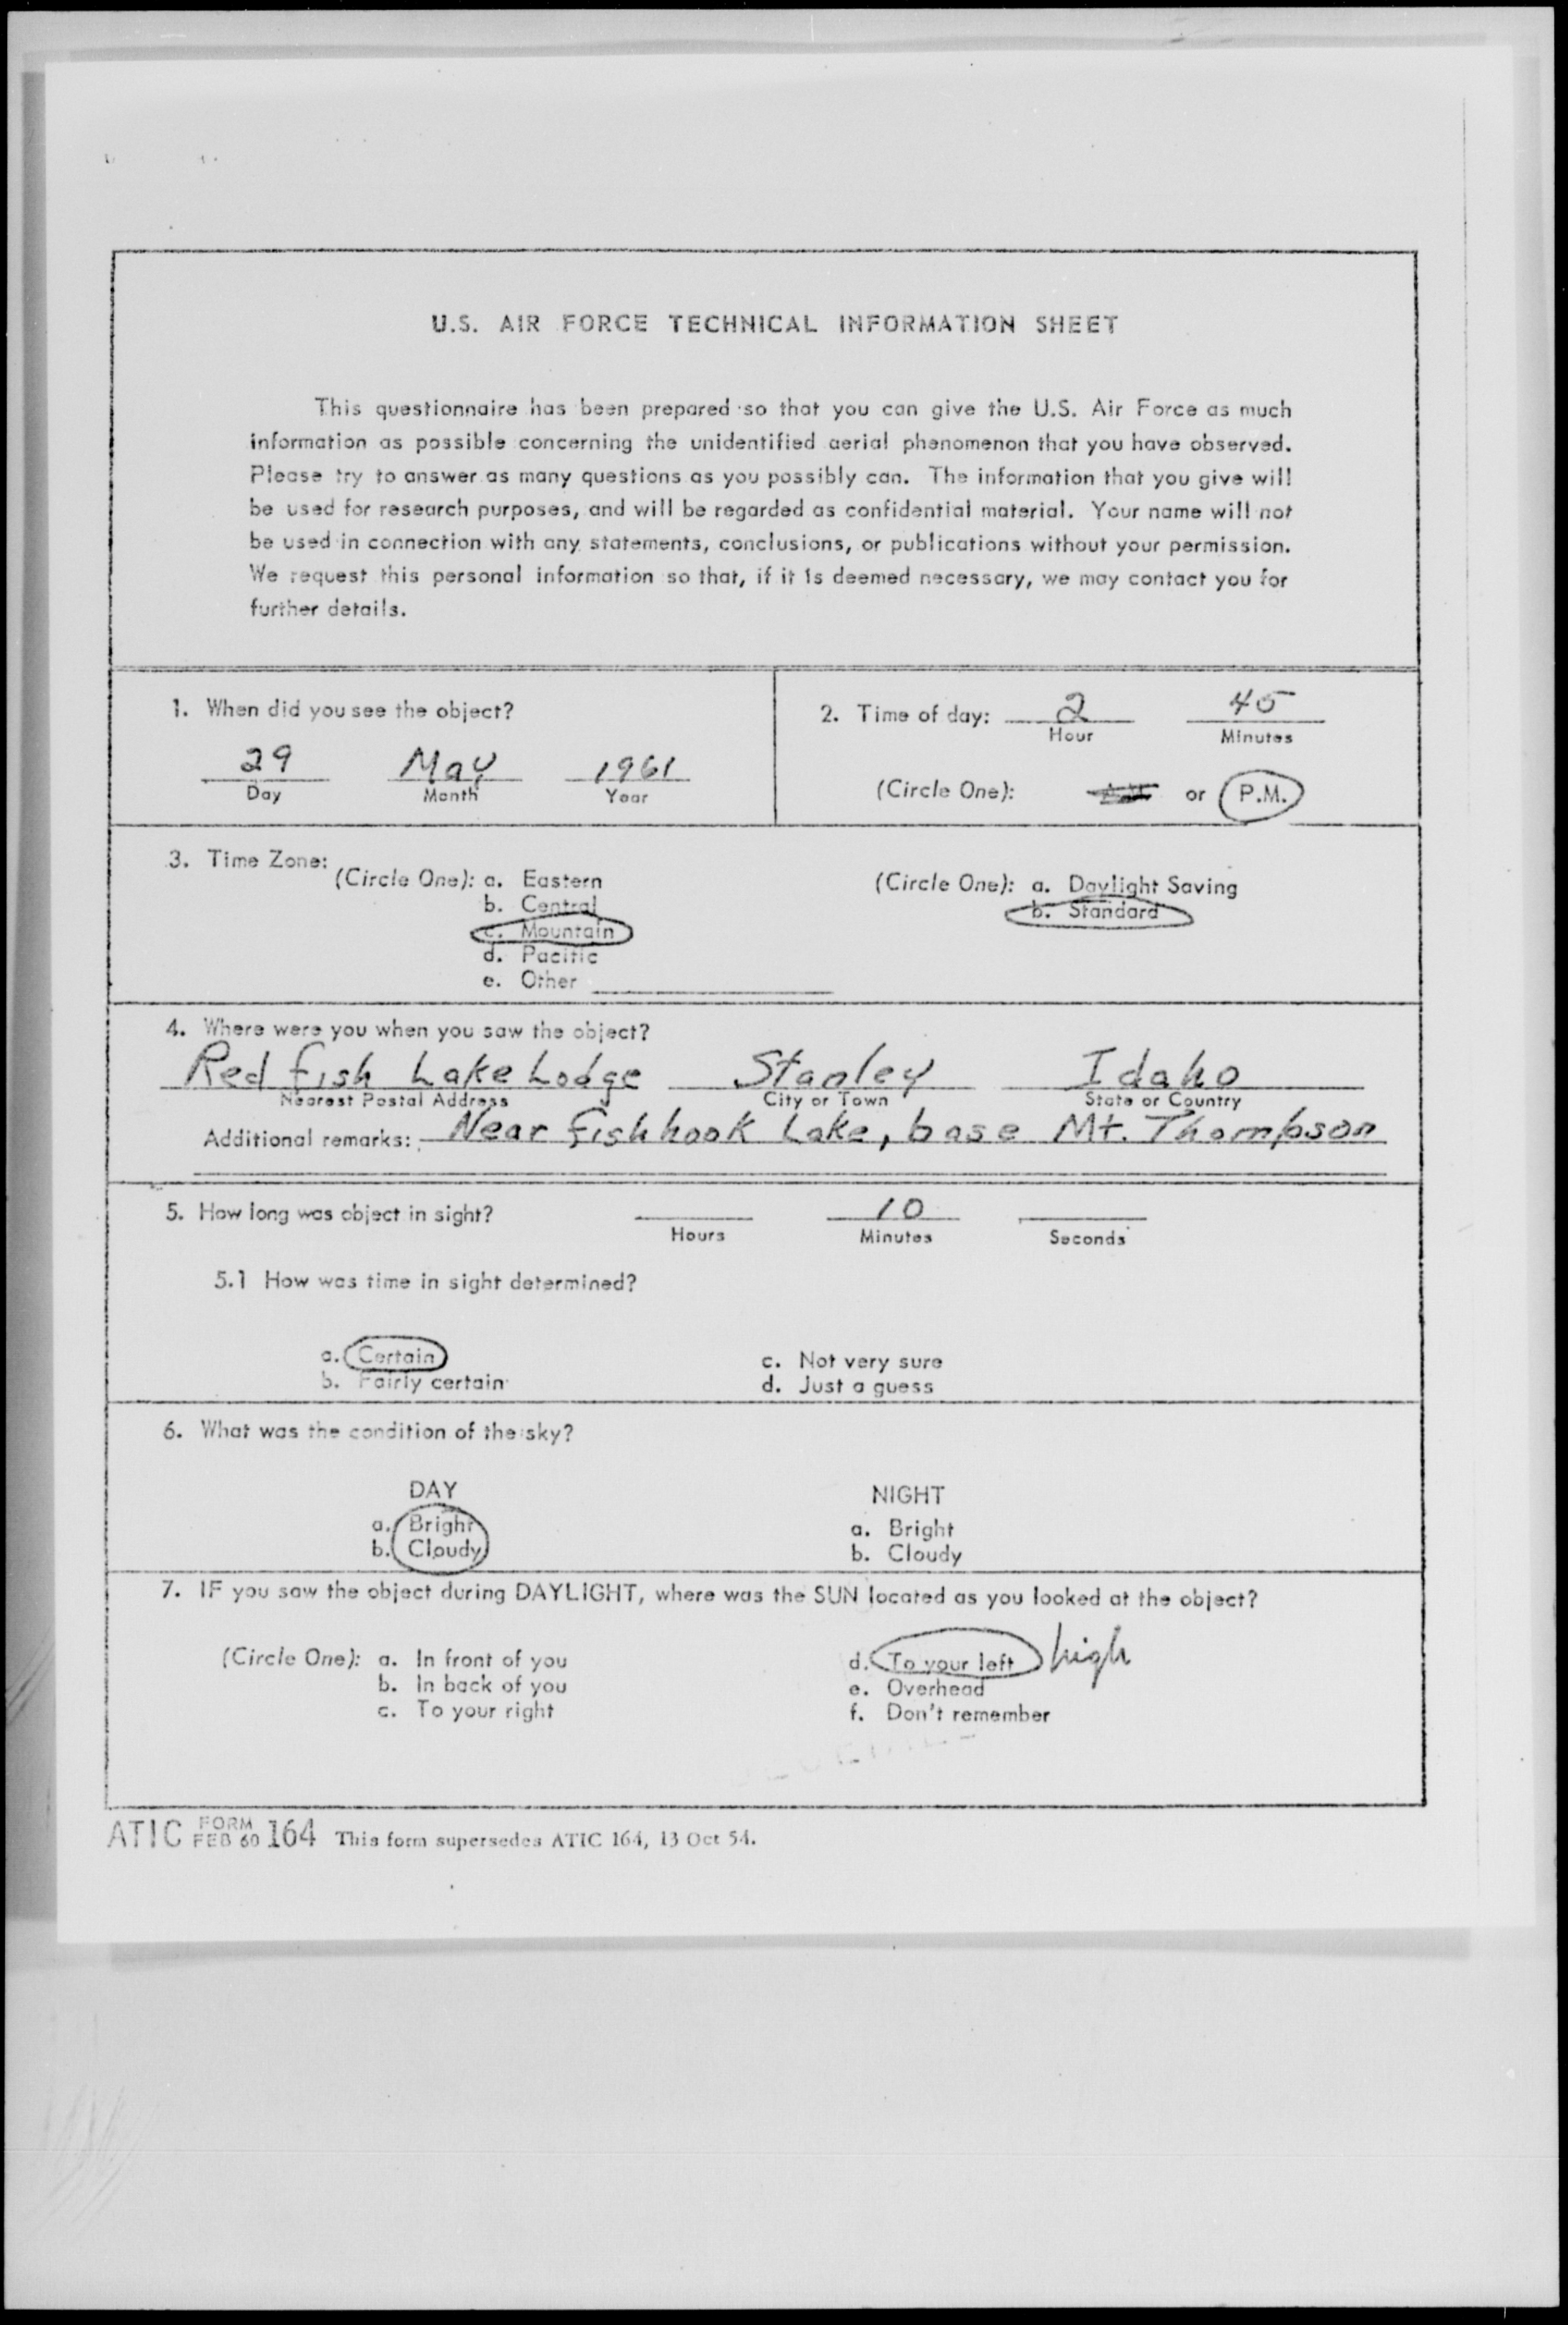 U.S. AIR FORCE TECHNICAL INFORMATION SHEET
This questionnaire has been prepared so that you can give the U.S. Air Force as much
information as possible concerning the unidentified aerial phenomenon that you have observed.
Please try to answer as many questions as you possibly can. The information that you give will
be used for research purposes, and will be regarded as confidential material. Your name will not
be used in connection with any statements, conclusions, or publications without your permission.
We request this personal information so that, if it is deemed necessary, we may contact you for
further details.
1. When did you see the object?
29 May 1961
Day Month Year
2. Time of day: 2 45
Hour Minutes
(Circle One): or P.M.
3. Time Zone:
(Circle One): a. Eastern
b. Central
c. Mountain
d. Pacific
e. Other
(Circle One): a. Daylight Saving
b. Standard
4. Where were you when you saw the object?
Red fish Lake Lodge Stanley Idaho
Nearest Postal Address City or Town State or Country
Additional remarks: Near fishhook Lake, base Mt. Thompson
5. How long was object in sight? 10
Hours Minutes Seconds
5.1 How was time in sight determined?
a. Certain
b. Fairly certain
c. Not very sure
d. Just a guess
6. What was the condition of the sky?
DAY
a. Bright
b. Cloudy
NIGHT
a. Bright
b. Cloudy
7. IF you saw the object during DAYLIGHT, where was the SUN located as you looked at the object?
(Circle One): a. In front of you
b. In back of you
c. To your right
d. To your left high
e. Overhead
f. Don't remember
ATIC FORM FEB 60 164 This form supersedes ATIC 164, 13 Oct 54.